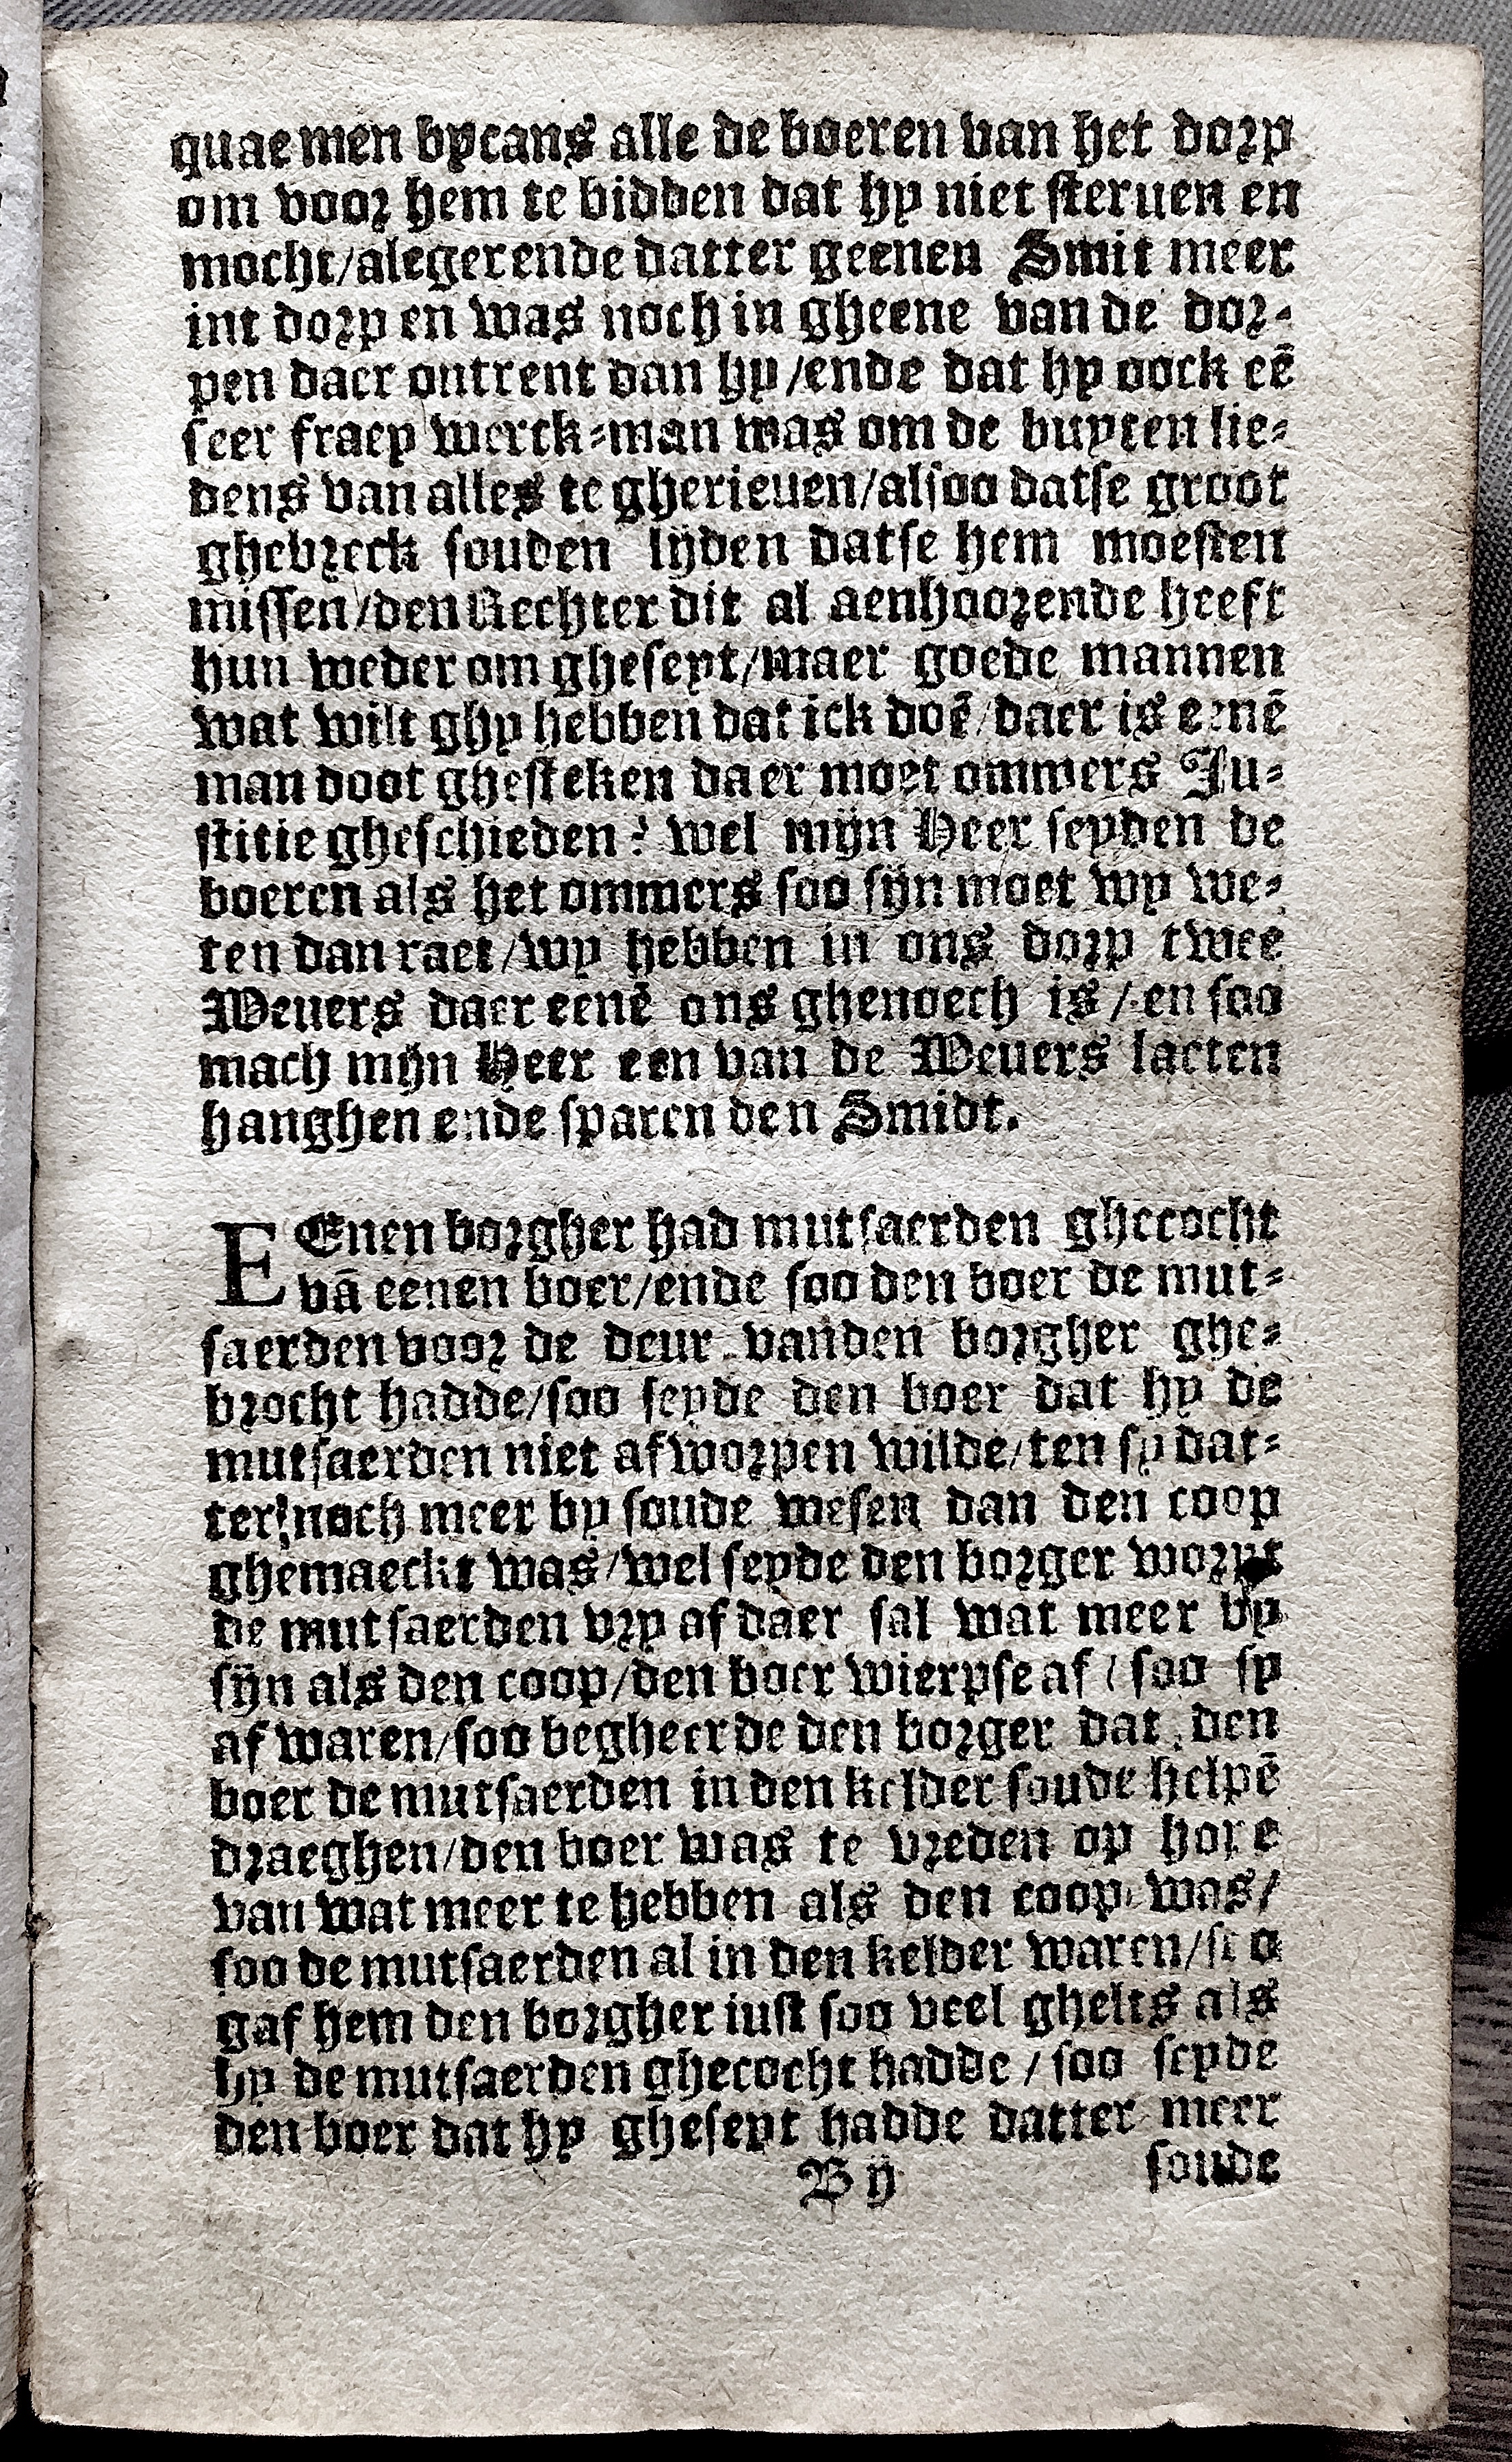 quaemen bycans alle de boeren van het dorp
om voor hem te bidden dat hy niet sterven en
mocht/alegerende datter geenen Smit meer
int dorp en was noch in gheene van de dor-
pen daer ontrent dan hy/ende dat hy oock eē
seer fraey werck-man was om de buyten lie-
dens van alles te gherieuen/alsoo datse groot
ghebreck souden lijden datse hem moesten
missen/den Rechter dit al aenhoorende heeft
hun weder om gheseyt/maer goede mannen
wat wilt ghy hebben dat ick doē/daer is eenē
man doot ghesteken daer moet ommers Ju-
stitie gheschieden? wel mijn Heer seyden de
boeren als het ommers soo sijn moet wy we-
ten dan raet/wy hebben in ons dorp twee
Weuers daer eenē ons ghenoech is/en soo
mach mijn Heer een van de Weuers laeten
hanghen ende sparen den Smidt.
EEnen borgher had mutsaerden ghecocht
vā eenen boer/ende soo den boer de mut-
saerden voor de deur vanden borgher ghe-
brocht hadde/soo seyde den boer dat hy de
mutsaerden niet afworpen wilde/ten sy dat-
ter noch meer by soude wesen dan den coop
ghemaeckt was/wel seyde den borger worpt
de mutsaerden vry af daer sal wat meer by
sijn als den coop/den boer wierpse af/soo sy
af waren/soo begheerde den borger dat den
boer de mutsaerden in den kelder soude helpē
draeghen/den boer was te vreden op hope
van wat meer te hebben als den coop was/
soo de mutsaerden al in den kelder waren/soo
gaf hem den borgher iust soo veel ghelts als
hy de mutsaerden ghecocht hadde/soo seyde
den boer dat hy gheseyt hadde datter meer
B ij soude